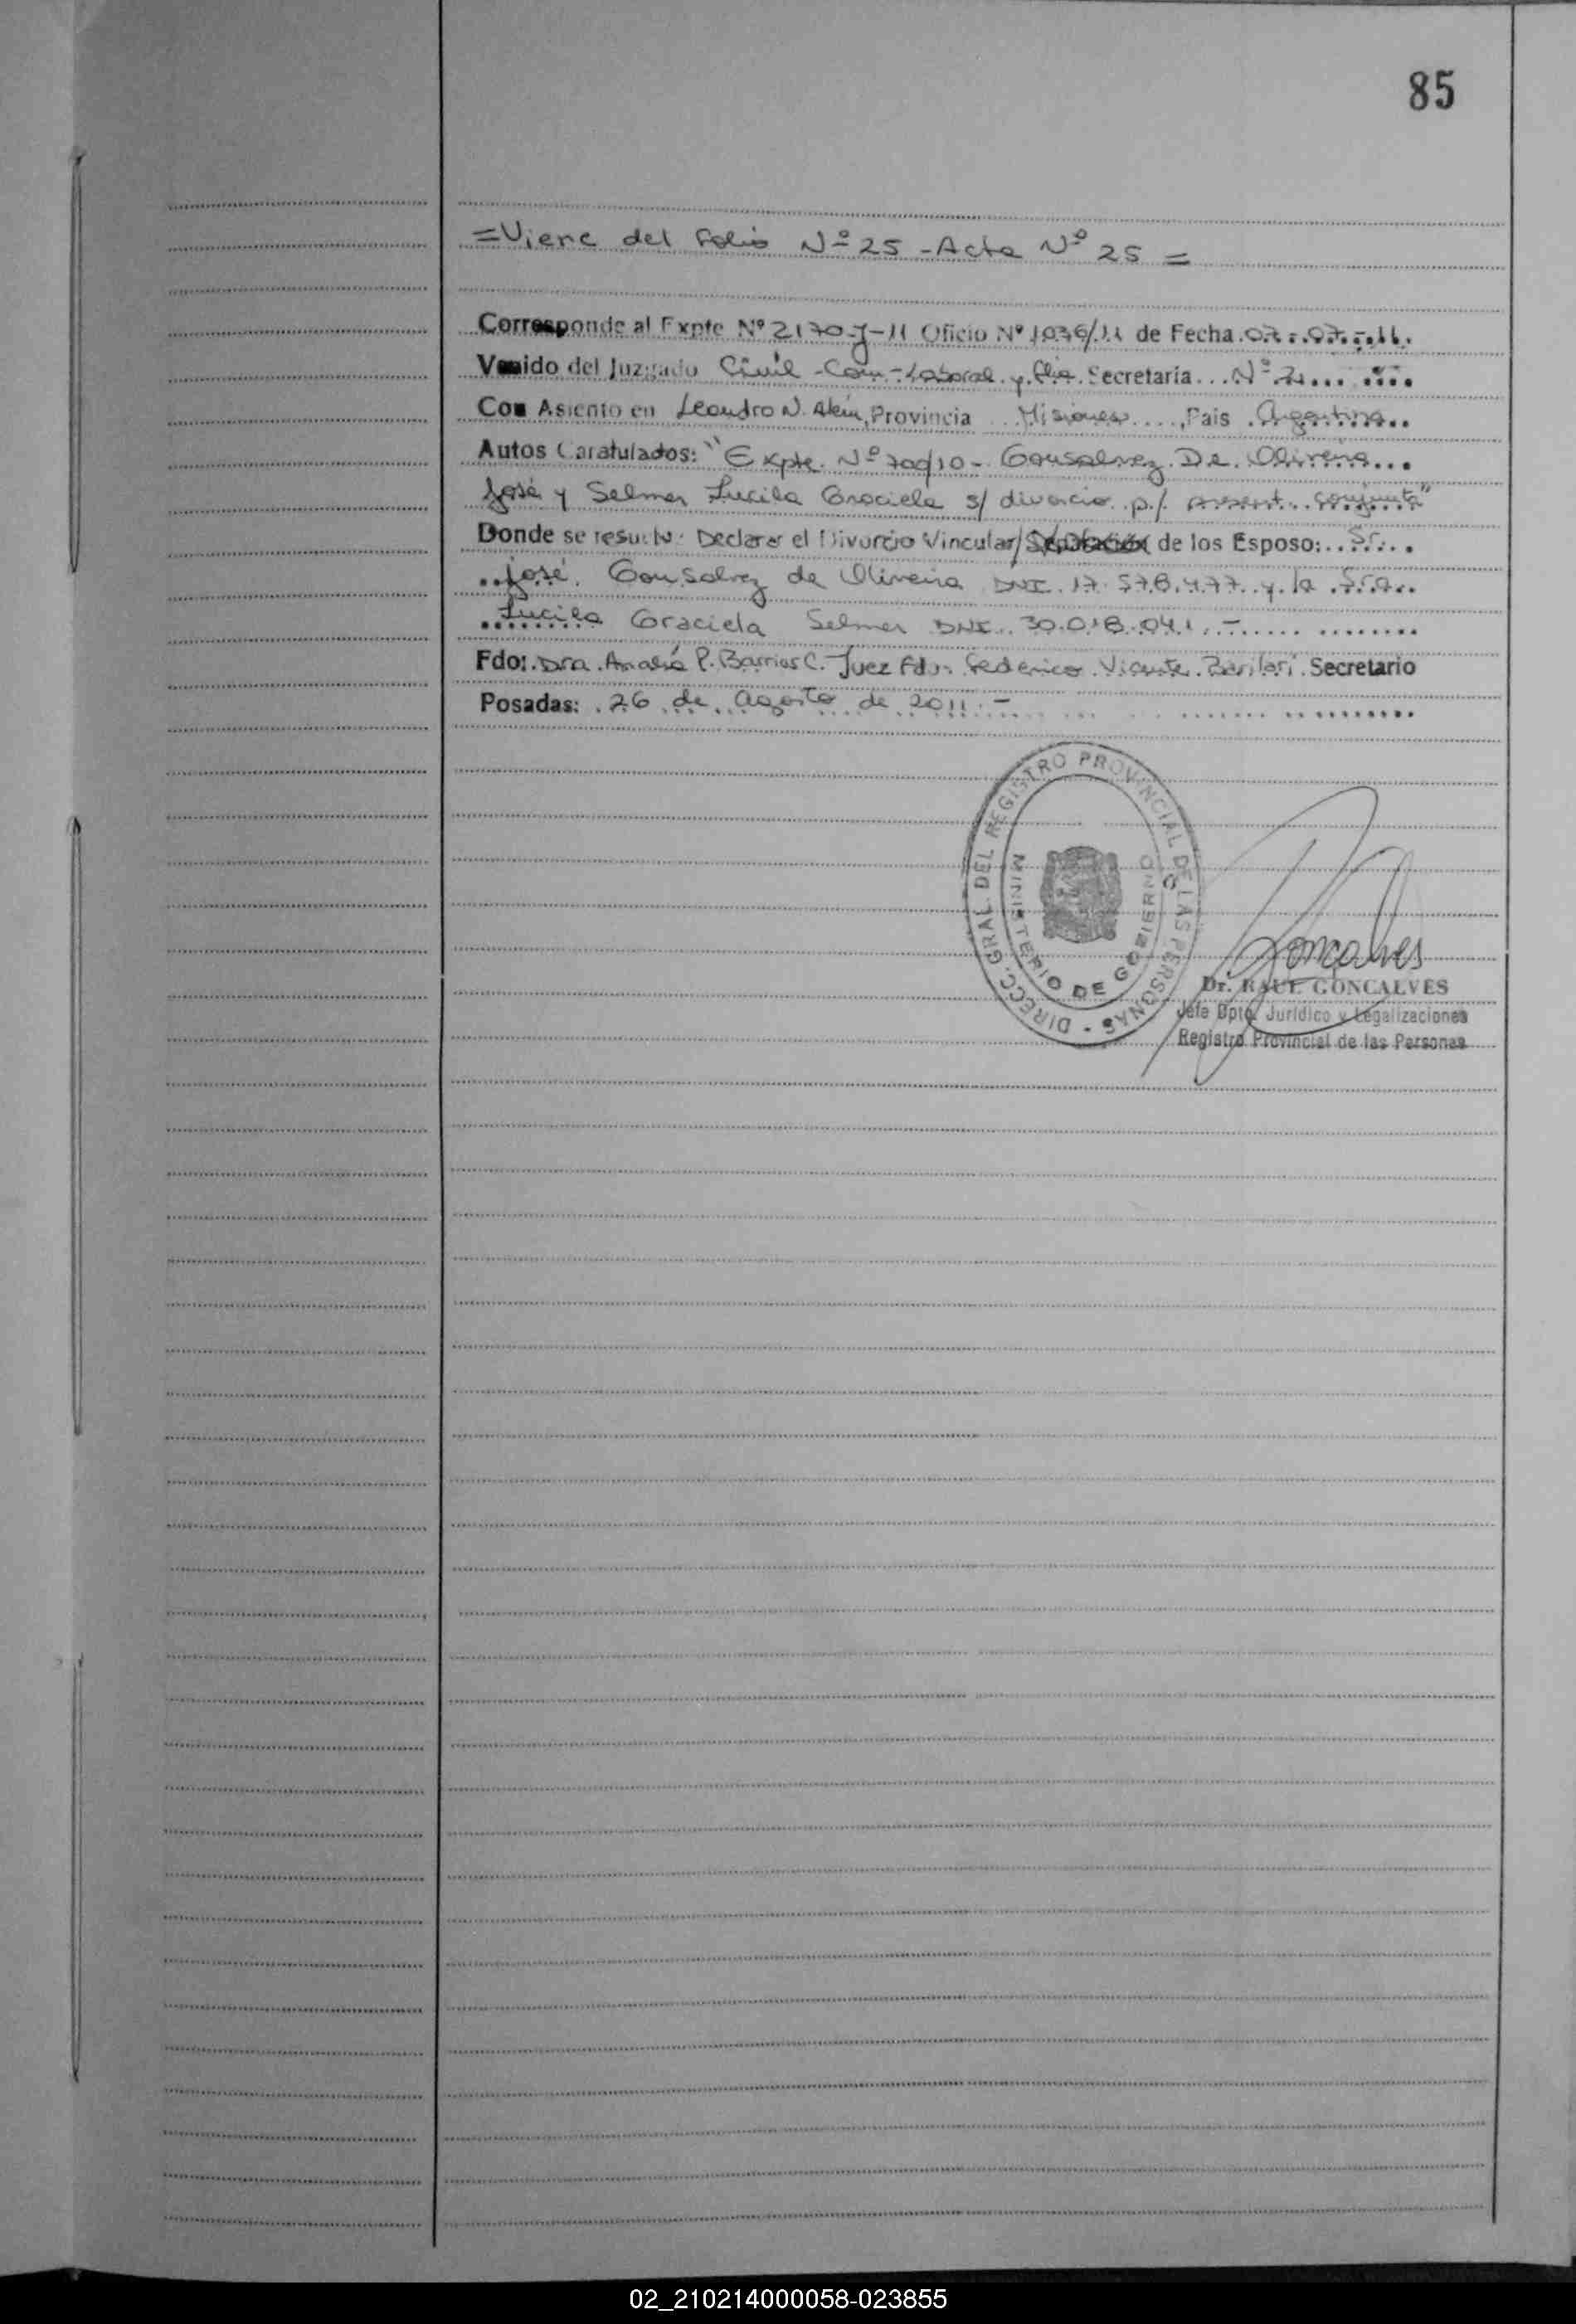 85
=Viene del Folio Nº 25 - Acta Nº 25 =
Corresponde al Expte Nº 2170-J-11 Oficio Nº 1036/11 de Fecha 07-07-11.
Venido del Juzgado Civil - Com - Laboral y Flia. Secretaría Nº 2
Con Asiento en Leandro N. Alem, Provincia Misiones, País Argentina
Autos Caratulados: "Expte. Nº 700/10 - Gonsalvez De Oliveira
José y Selmer Lucila Graciela s/ divorcio p/ present. conjunta"
Donde se resuelve: Declarar el Divorcio Vincular/Separación de los Esposo: Sr.
José Gonsalvez de Oliveira DNI 17.578.477 y la Sra.
Lucila Graciela Selmer DNI. 30.018.041.-
Fdo: Dra. Analía P. Barrios C. Juez Fdo: Federico Vicente Barilari Secretario
Posadas: 26 de agosto de 2011.-
DIRECC. GRAL. DEL REGISTRO PROVINCIAL DE LAS PERSONAS -
MINISTERIO DE GOBIERNO
Goncalves
Dr. RAUL GONCALVES
Jefe Dpto. Jurídico y Legalizaciones
Registro Provincial de las Personas
02_210214000058-023855